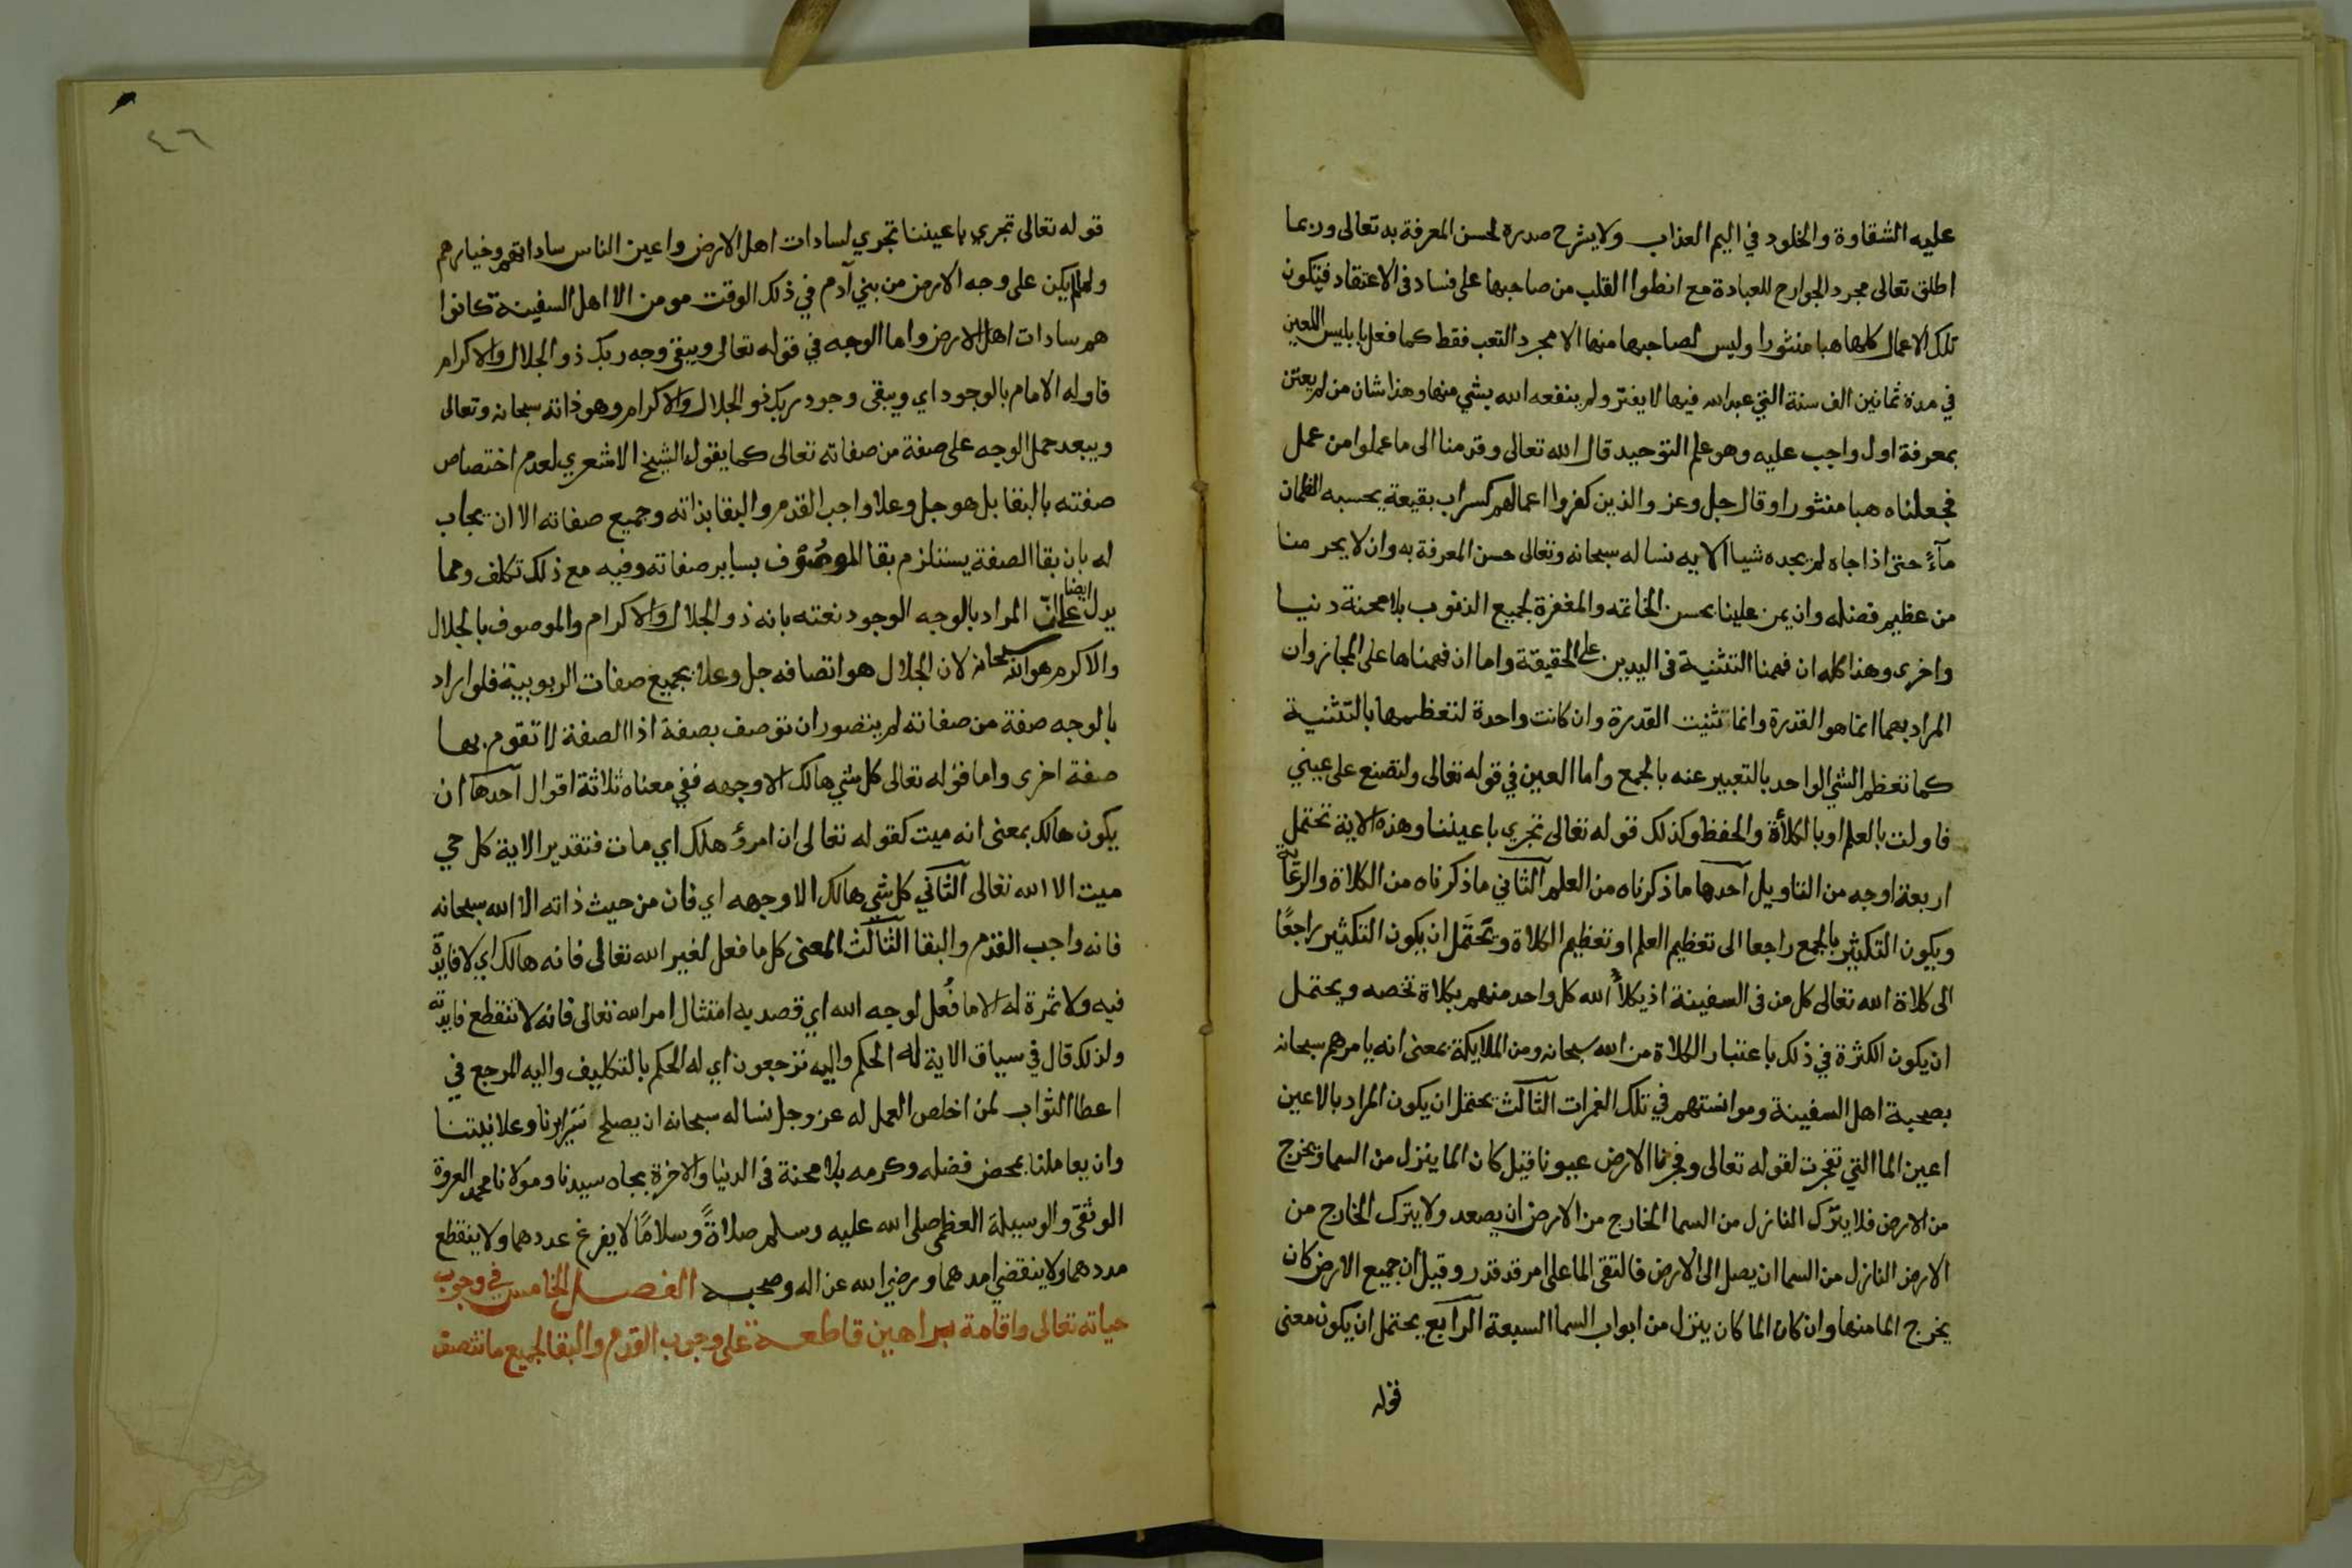 عليه الشقاوة والخلود في اليم العذاب ولا يشرح صدره لحسن المعرفة به تعالى وربما
اطلق تعالى مجرد الجوارح للعبادة مع انطوا القلب من صاحبها على فساد في الاعتقاد فتكون
تلك الاعمال كلها هبا منثورا وليس لصاحبها منها الا مجرد التعب فقط كما فعل بابليس اللعين
في مدة ثمانين الف سنة التي عبد الله فيها لا يفتر ولم ينفعه الله بشي منها وهذا شان من لم يعتن
بمعرفة اول واجب عليه وهو علم التوحيد قال الله تعالى وقدمنا الى ما عملوا من عمل
فجعلناه هبا منثورا وقال جل وعز والذين كفروا اعمالهم كسراب بقيعة يحسبه الظمان
مآءً حتى اذا جاه لم يجده شيا الايه نساله سبحانه وتعالى حسن المعرفة به وان لا يحرمنا
من عظيم فضله وان يمن علينا بحسن الخاتمه والمغفرة لجميع الذنوب بلا محنة دنيا
واخرى وهذا كله ان فهمنا التثنية في اليدين على الحقيقة واما ان فهمناها على المجاز وان
المراد بهما انما هو القدرة وانما تثنيت القدرة وان كانت واحدة لتعظيمها بالتثنية
كما تعظم الشي الواحد بالتعبير عنه بالجمع واما العين في قوله تعالى ولتصنع على عيني
فاولت بالعلم او بالكلأة والحفظ وكذلك قوله تعالى تجري باعيننا وهذه الاية تحتمل
اربعة اوجه من التاويل احدها ما ذكرناه من العلم الثاني ما ذكرناه من الكلاة والرعاية
ويكون التكثير بالجمع راجعا الى تعظيم العلم او تعظيم الكلاة وتحتمل ان يكون التكثير راجعًا
الى كلاة الله تعالى كل من في السفينة اذ يكلأ الله كل واحد منهم بكلاة تخصه ويحتمل
ان يكون الكثرة في ذلك باعتبار الكلاة من الله سبحانه ومن الملايكة بمعنى انه يامرهم سبحانه
بصحبة اهل السفينة وموانستهم في تلك الغمرات الثالث يحتمل ان يكون المراد بالاعين
اعين الما التي تفجرت لقوله تعالى وفجرنا الارض عيونا قيل كان الما ينزل من السما ويخرج
من الارض فلا يترك النازل من السما الخارج من الارض ان يصعد ولا يترك الخارج من
الارض النازل من السما ان يصل الى الارض فالتقى الما على امر قد قدر وقيل ان جميع الارض كان
يخرج الما منها وان كان الما كان ينزل من ابواب السما السبعة الرابع يحتمل ان يكون معنى
قوله
٤٦
قوله تعالى تجري باعيننا تجري لسادات اهل الارض واعين الناس ساداتهم وخيارهم
ولما لم يكن على وجه الارض من بني آدم في ذلك الوقت مومن الا اهل السفينة كانوا
هم سادات اهل الارض واما الوجه في قوله تعالى ويبقى وجه ربك ذو الجلال والاكرام
فاوله الامام بالوجود اي ويبقى وجود ربك ذو الجلال والاكرام وهو ذاته سبحانه وتعالى
ويبعد حمل الوجه على صفة من صفاته تعالى كما يقوله الشيخ الاشعري لعدم اختصاص
صفته بالبقا بل هو جل وعلا واجب القدم والبقا بذاته وجميع صفاته الا ان يجاب
له بان بقا الصفة يستلزم بقا الموصوف بساير صفاته وفيه مع ذلك تكلف ومما
يدل ايضا على ان المراد بالوجه الوجود نعته بانه ذو الجلال والاكرام والموصوف بالجلال
والاكرم هو الله سبحانه لان الجلال هو اتصافه جل وعلا بجميع صفات الربوبية فلو اراد
بالوجه صفة من صفاته لم يتصور ان توصف بصفة اذ الصفة لا تقوم بها
صفة اخرى واما قوله تعالى كل شي هالك الا وجهه ففي معناه ثلاثة اقوال احدها ان
يكون هالك بمعنى انه ميت كقوله تعالى ان امرؤ هلك اي مات فتقدير الاية كل حي
ميت الا الله تعالى الثاني كل شي هالك الا وجهه اي فان من حيث ذاته الا الله سبحانه
فانه واجب القدم والبقا الثالث المعنى كل ما فعل لغير الله تعالى فانه هالك اي لا فايدة
فيه ولا ثمرة له الا ما فُعل لوجه الله اي قصد به امتثال امر الله تعالى فانه لا تنقطع فايدته
ولذلك قال في سياق الاية له الحكم واليه ترجعون اي له الحكم بالتكليف واليه المرجع في
اعطا الثواب لمن اخلص العمل له عز وجل نساله سبحانه ان يصلح سرايرنا وعلانيتنا
وان يعاملنا بمحض فضله وكرمه بلا محنة في الدنيا والاخرة بجاه سيدنا ومولانا محمد العروة
الوثقى والوسيلة العظمى صلى الله عليه وسلم صلاةً وسلامًا لا يفرغ عددهما ولا ينقطع
مددهما ولا ينقضي امدهما ورضي الله عن اله وصحبه الفصل الخامس في وجوب
حياته تعالى واقامة براهين قاطعة على وجوب القدم والبقا لجميع ما تتصف